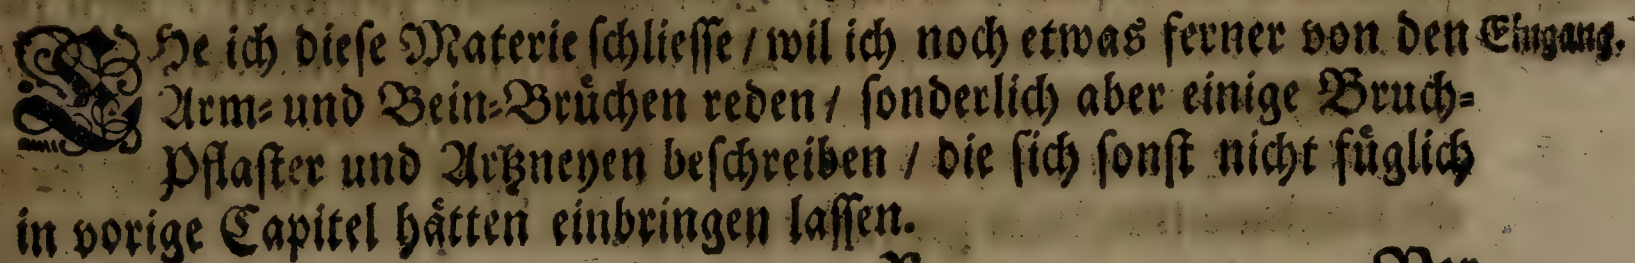 EHe ich dieſe Materie ſchlieſſe / wil ich noch etwas ferner von den Eingang.
Arm⸗ und Bein⸗Bruͤchen reden / ſonderlich aber einige Bruch⸗
Pflaſter und Artzneyen beſchreiben / die ſich ſonſt nicht fuͤglich
in vorige Capitel haͤtten einbringen laſſen.